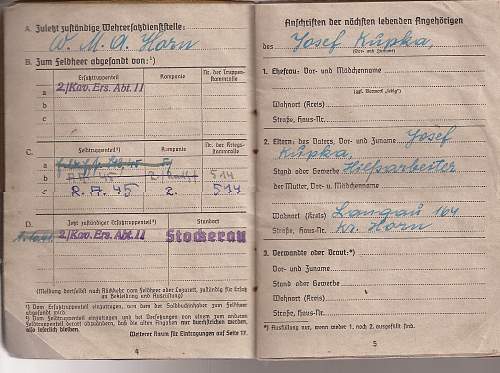 A. Zuletzt zuständige Wehrersatzdienststelle:
W. M. A. Horn
B. Zum Feldheer abgesandt von:¹)
Ersatztruppenteil Kompanie Nr. der Truppenstammrolle
a 2./Kav. Ers. Abt. 11
b
c
C. Feldtruppenteil²) Kompanie Nr. der Kriegsstammrolle
a
b 45 2. 514
c R. A. 45 2. 514
D. Jetzt zuständiger Ersatztruppenteil²) Standort
2./Kav. Ers. Abt. 11 Stockerau
(Meldung dortselbst nach Rückkehr vom Feldheer oder Lazarett, zuständig für Ersatz an Bekleidung und Ausrüstung)
¹) Vom Ersatztruppenteil einzutragen, von dem der Soldbuchinhaber zum Feldheer abgesandt wird.
²) Vom Feldtruppenteil einzutragen und bei Versetzungen von einem zum anderen Feldtruppenteil derart abzuändern, daß die alten Angaben nur durchstrichen werden, also leserlich bleiben.
Weiterer Raum für Eintragungen auf Seite 17.
4
Anschriften der nächsten lebenden Angehörigen
des Josef Kupka,
(Vor- und Zuname)
1. Ehefrau: Vor- und Mädchenname
(ggf. Vermerk „ledig“)
Wohnort (Kreis)
Straße, Haus-Nr.
2. Eltern: des Vaters, Vor- und Zuname Josef
Kupka,
Stand oder Gewerbe Hilfsarbeiter
der Mutter, Vor- u. Mädchenname
Wohnort (Kreis) Langau 164
Straße, Haus-Nr. Kr. Horn
3. Verwandte oder Braut:*)
Vor- und Zuname
Stand oder Gewerbe
Wohnort (Kreis)
Straße, Haus-Nr.
*) Ausfüllung nur, wenn weder 1. noch 2. ausgefüllt sind.
5